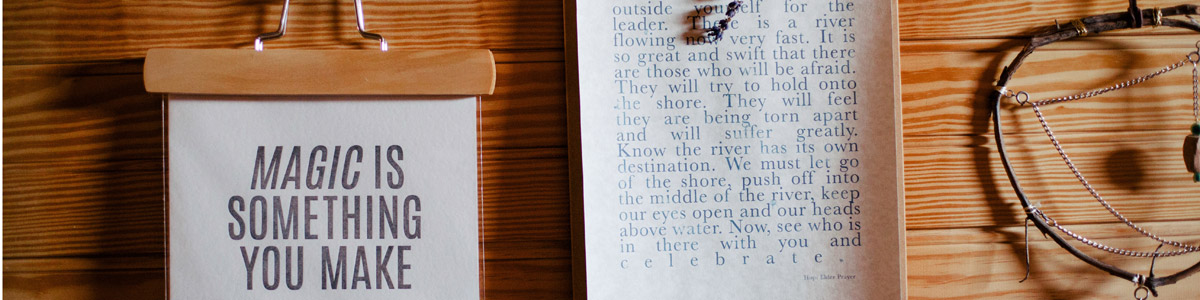 MAGIC IS
SOMETHING
YOU MAKE
outside yourself for the
leader. There is a river
flowing now very fast. It is
so great and swift that there
are those who will be afraid.
They will try to hold onto
the shore. They will feel
they are being torn apart
and will suffer greatly.
Know the river has its own
destination. We must let go
of the shore, push off into
the middle of the river, keep
our eyes open and our heads
above water. Now, see who is
in there with you and
celebrate.
Hopi Elder Prayer